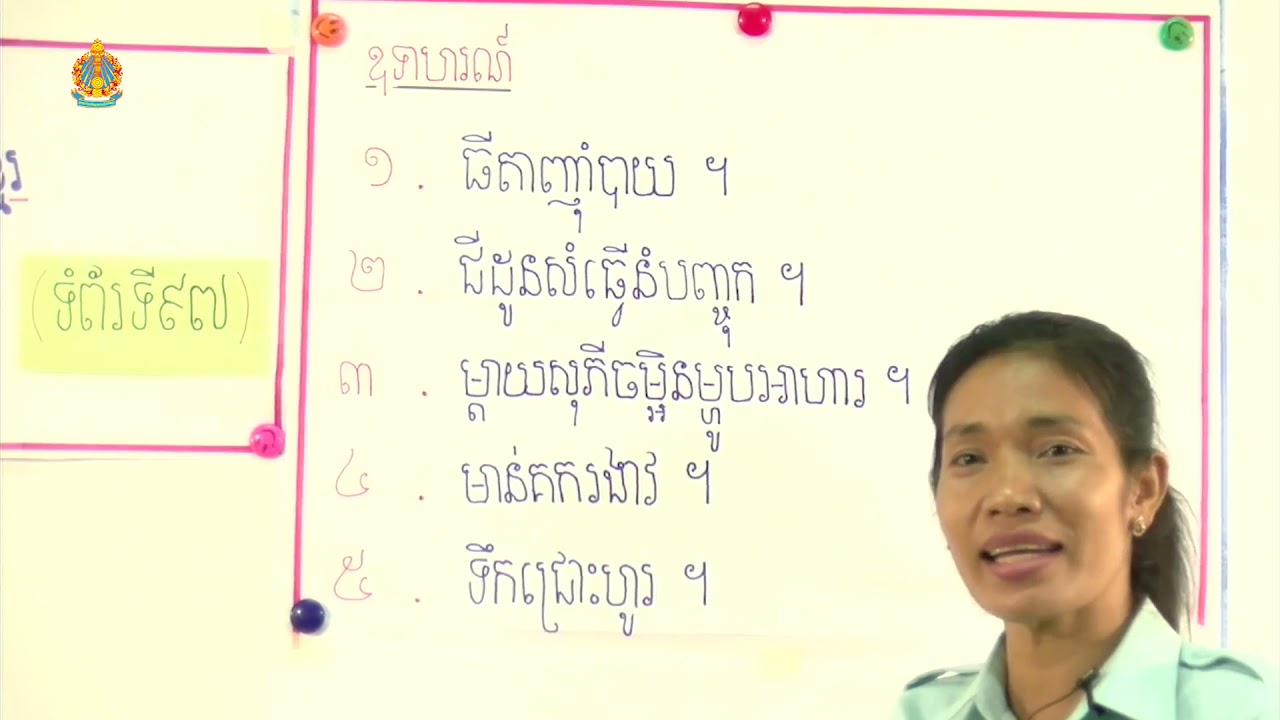 (ទំព័រទី៩៧)
ឧទាហរណ៍
១. ធីតាញ៉ាំបាយ ។
២. ជីដូនសំធ្វើនំបញ្ចុក ។
៣. ម្ដាយសុភីចម្អិនម្ហូបអាហារ ។
៤. មាន់គករងាវ ។
៥. ទឹកជ្រោះហូរ ។